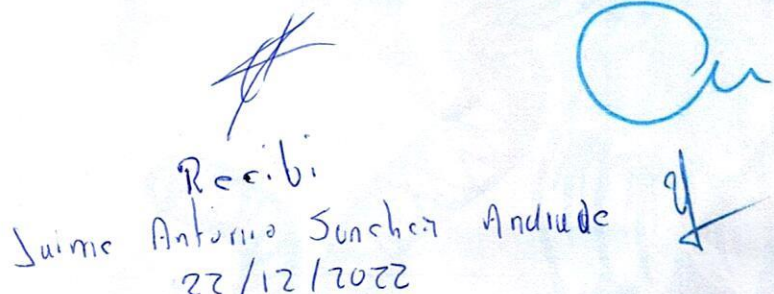 Recibi
Jaime Antonio Sanchez Andrade
22/12/2022